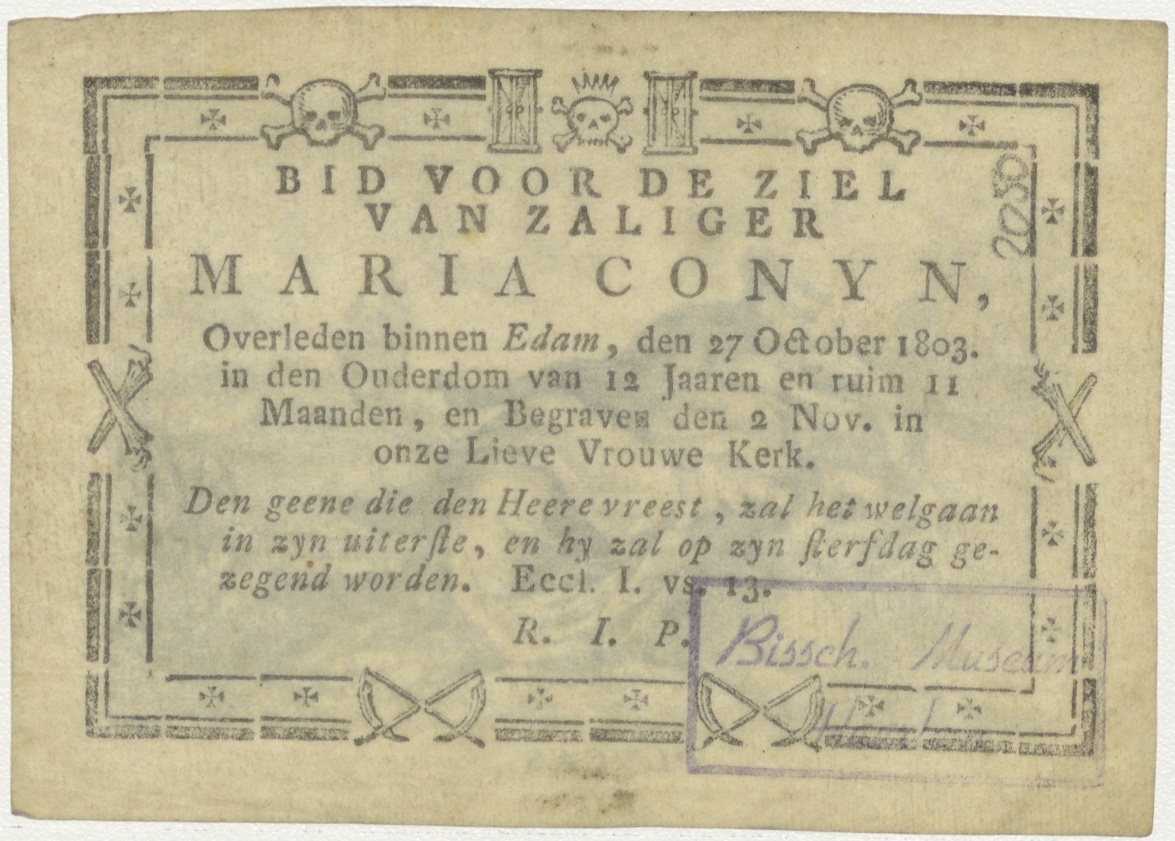 BID VOOR DE ZIEL
VAN ZALIGER
MARIA CONYN,
Overleden binnen Edam, den 27 October 1803.
in den Ouderdom van 12 Jaaren en ruim 11
Maanden, en Begraven den 2 Nov. in
onze Lieve Vrouwe Kerk.
Den geene die den Heere vreest, zal het welgaan
in zyn uiterste, en hy zal op zyn sterfdag ge-
zegend worden. Eccl. I. vs. 13.
R. I. P.
2050
Bissch. Museum